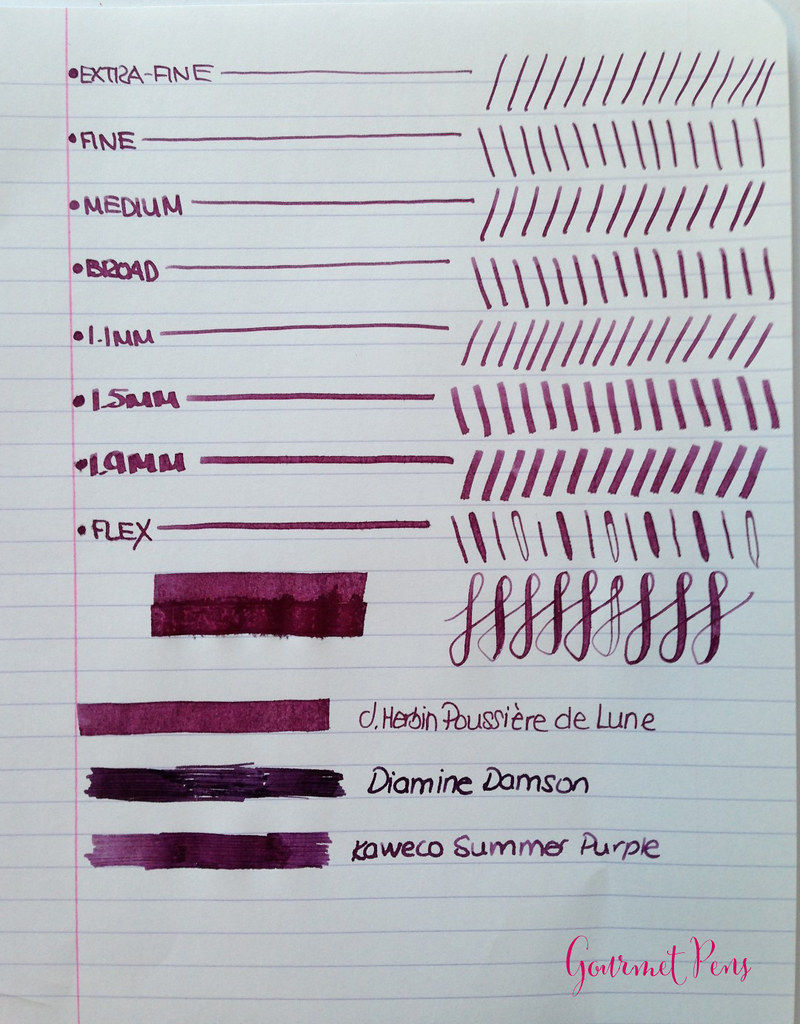 •EXTRA-FINE
•FINE
•MEDIUM
•BROAD
•1.1MM
•1.5MM
•1.9MM
•FLEX
J.Herbin Poussière de Lune
Diamine Damson
Kaweco Summer Purple
Gourmet Pens